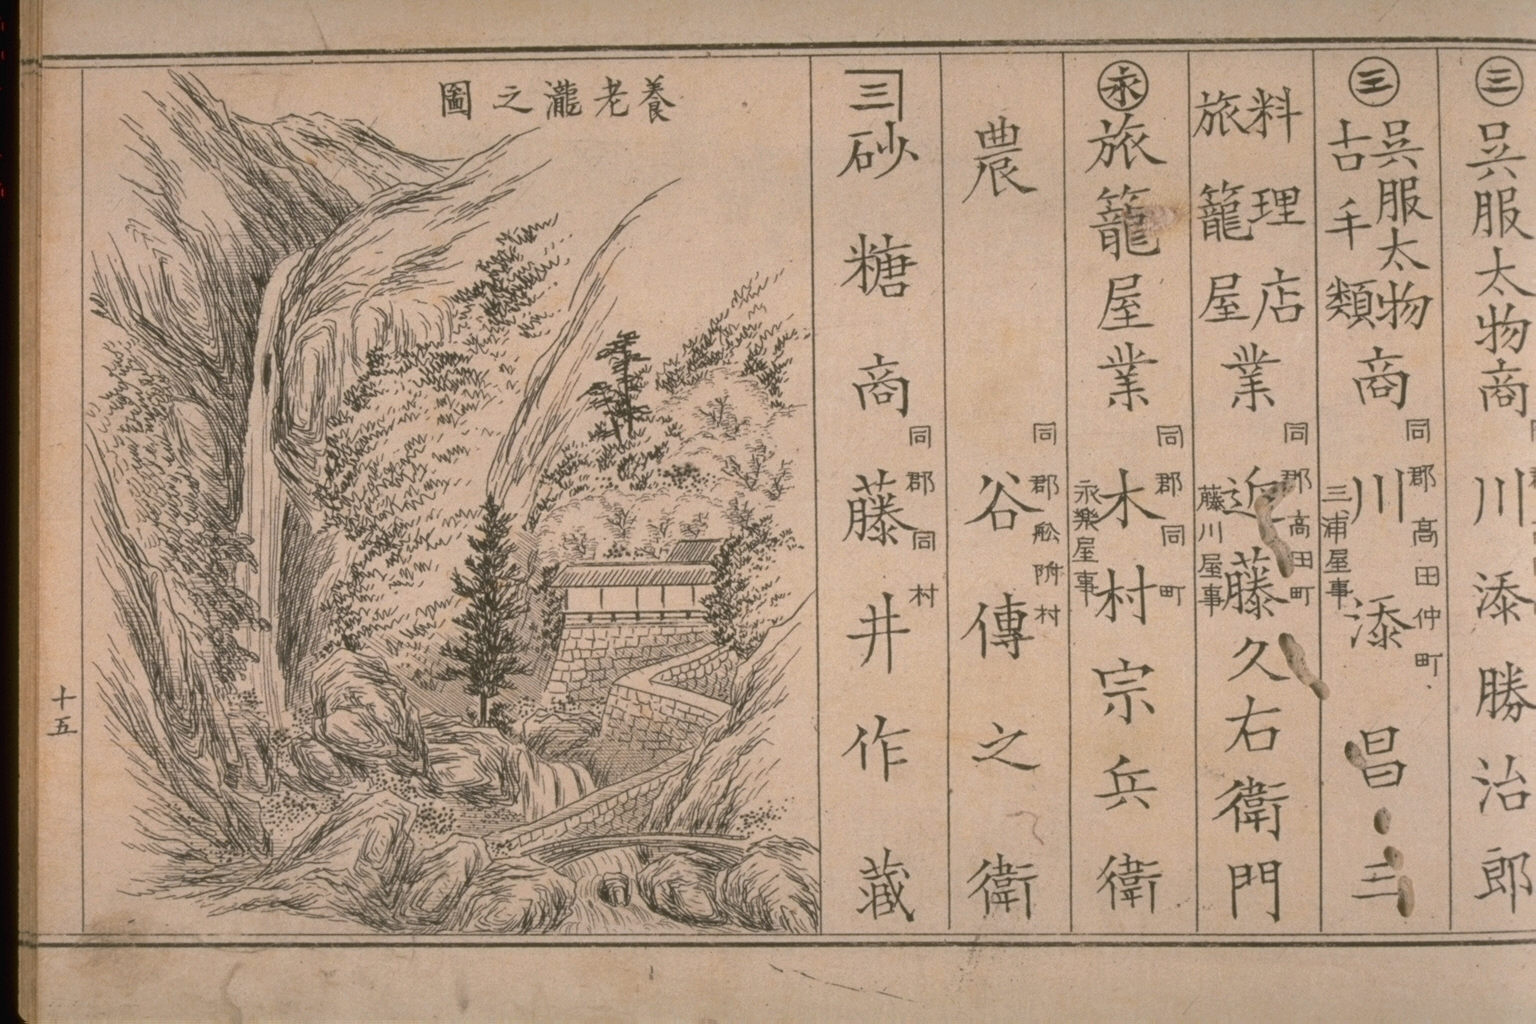 ㊂ 呉服太物商 川添勝治郎
㊂ 呉服太物 古手類 商 同郡高田仲町 三浦屋事 川添昌三
料理店 旅籠屋業 同郡高田町 藤川屋事 近藤久右衛門
永 旅籠屋業 同郡同町 永樂屋事 木村宗兵衛
農 同郡舩附村 谷傳之衛
三 砂糖商 同郡同村 藤井作藏
養老瀧之圖
十五